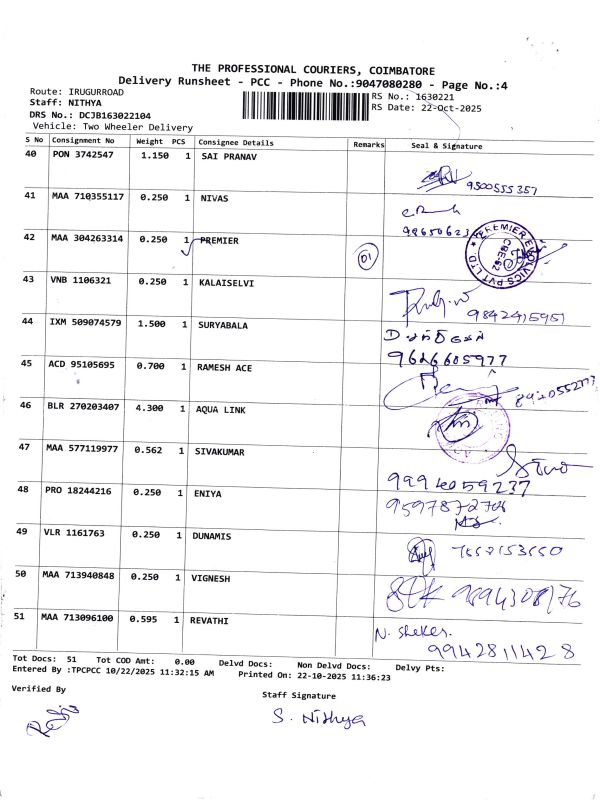 THE PROFESSIONAL COURIERS, COIMBATORE
Delivery Runsheet - PCC - Phone No.:9047080280 - Page No.:4
Route: IRUGURROAD
RS No.: 1630221
Staff: NITHYA
RS Date: 22-Oct-2025
DRS No.: DCJB163022104
Vehicle: Two Wheeler Delivery
S No Consignment No Weight PCS Consignee Details Remarks Seal & Signature
40 PON 3742547 1.150 1 SAI PRANAV
9500555357
41 MAA 710355117 0.250 1 NIVAS
42 MAA 304263314 0.250 1 PREMIER
D1
43 VNB 1106321 0.250 1 KALAISELVI
9842415951
44 IXM 509074579 1.500 1 SURYABALA
9626605977
45 ACD 95105695 0.700 1 RAMESH ACE
46 BLR 270203407 4.300 1 AQUA LINK
47 MAA 577119977 0.562 1 SIVAKUMAR
9994059237
48 PRO 18244216 0.250 1 ENIYA
49 VLR 1161763 0.250 1 DUNAMIS
50 MAA 713940848 0.250 1 VIGNESH
51 MAA 713096100 0.595 1 REVATHI
N. Sheker.
9942811428
Tot Docs: 51 Tot COD Amt: 0.00 Delvd Docs: Non Delvd Docs: Delvy Pts:
Entered By :TPCPCC 10/22/2025 11:32:15 AM Printed On: 22-10-2025 11:36:23
Verified By
Staff Signature
S. Nithya